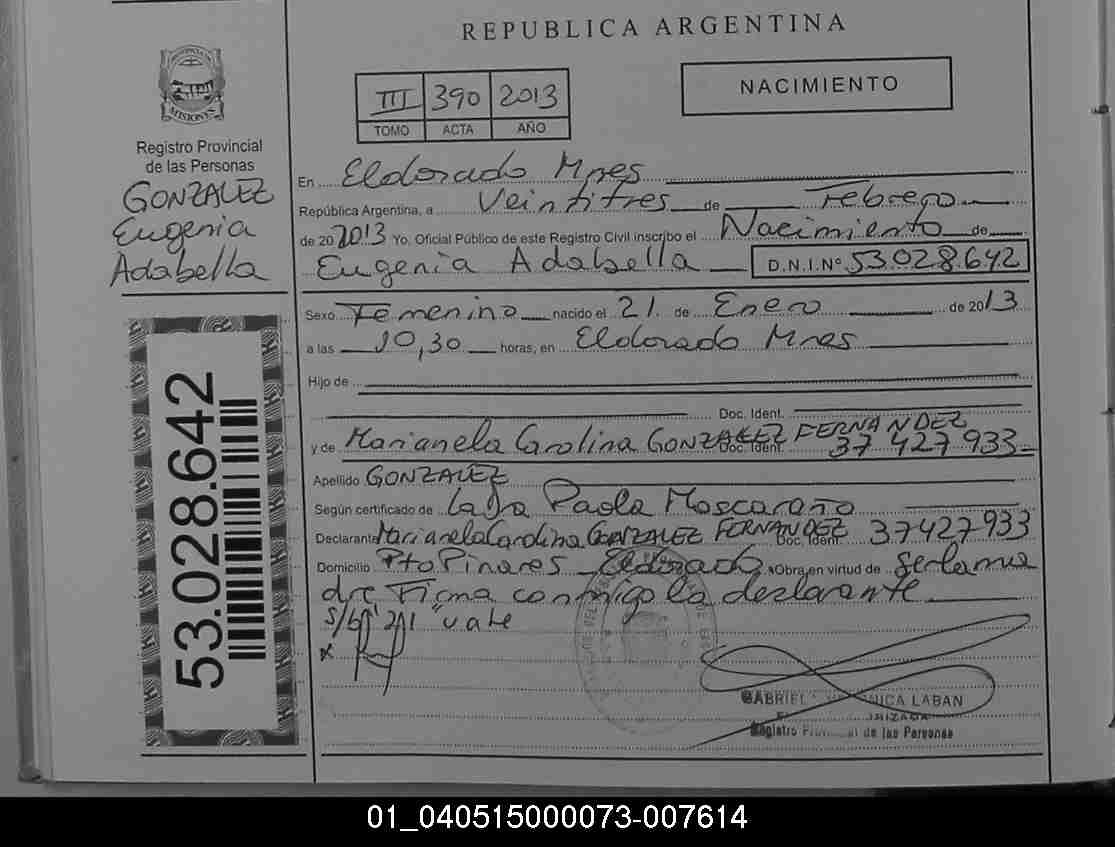 REPUBLICA ARGENTINA
PROVINCIA DE
MISIONES
Registro Provincial
de las Personas
GONZALEZ
Eugenia
Adabella
53.028.642
III 390 2013
TOMO ACTA AÑO
NACIMIENTO
En Eldorado Mnes
República Argentina, a Veintitres de Febrero
de 20 2013 Yo, Oficial Público de este Registro Civil inscribo el Nacimiento de
Eugenia Adabella D.N.I.Nº 53.028.642
Sexo Femenino nacido el 21 de Enero de 2013
a las 10,30 horas, en Eldorado Mnes
Hijo de
Doc. Ident.
y de Marianela Carolina GONZALEZ FERNANDEZ Doc. Ident. 37 427 933
Apellido GONZALEZ
Según certificado de Paola Moscaraño
Declarante Marianela Carolina GONZALEZ FERNANDEZ Doc. Ident. 37427933
Domicilio Pto Pinares Eldorado Obra en virtud de ser la ma
dre Firma conmigo la declarante
S/b "21" vale
x
GABRIEL LABAN
Registro de las Personas
01_040515000073-007614